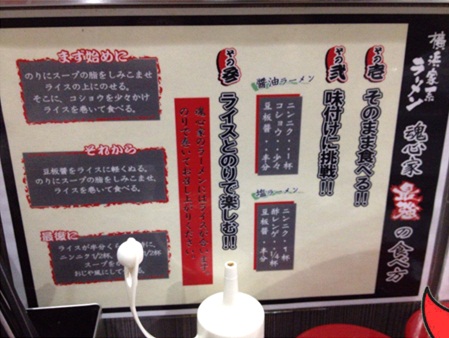 横浜家系
ラーメン 魂心家 最強の食べ方
その壱 そのまま食べる!!
その弐 味付けに挑戦!!
醤油ラーメン
ニンニク・・・一杯
コショウ・・・少々
豆板醤・・・半分
塩ラーメン
ニンニク・・・1杯
豆板醤・・・半分
その参 ライスとのりで楽しむ!!
のりで巻いてお召し上がりください。
まず始めに
のりにスープの脂をしみこませ
ライスの上にのせる。
そこに、コショウを少々かけ
ライスを巻いて食べる。
それから
豆板醤をライスに軽くぬる。
のりにスープの脂をしみこませ、
ライスを巻いて食べる。
最後に
ライスが半分く
ニンニク1/2杯
スープを
おじや風にして